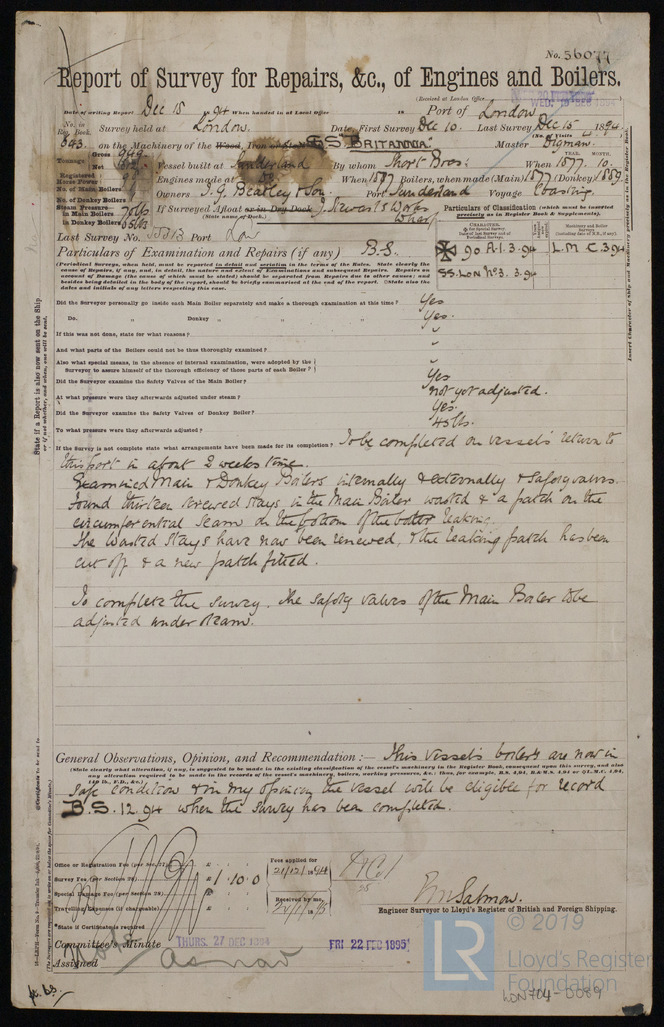 No. 56077
Report of Survey for Repairs, &c., of Engines and Boilers.
(Received at London Office
Date of writing Report Dec 15 1894 When handed in at Local Office
Port of London
No. in Reg. Book.
643
Survey held at London. Date, First Survey Dec 10. Last Survey Dec 15 1894
(No. of Visits
on the Machinery of the Wood, Iron or Steel S.S. "BRITANNIA" Master
Tonnage
Gross
Net
Vessel built at Sunderland By whom Short Bros: When 1877. 10.
YEAR. MONTH.
Registered Horse Power
Engines made at Do. When 1877 Boilers, when made (Main) 1877 (Donkey) 1889
No. of Main Boilers
No. of Donkey Boilers
Owners & Son. Port Sunderland Voyage Coasting.
Steam Pressure in Main Boilers 70 lbs
in Donkey Boilers
If Surveyed Afloat or in Dry Dock J. Stewart's Works Wharf
(State name of Dock.)
Particulars of Classification (which must be inserted precisely as in Register Book & Supplements).
Last Survey No. Port Lon
90 A.1. 3.94 L.M.C. 3.94
SS. LON No 3. 3.94
Particulars of Examination and Repairs (if any) B.S.
(Periodical Surveys, when held, must be reported in detail and seriatim in the terms of the Rules. State clearly the
cause of Repairs, if any, and, in detail, the nature and extent of Examinations and subsequent Repairs. Repairs on
account of Damage (the cause of which must be stated) should be separated from Repairs due to other causes; and
besides being detailed in the body of the report, should be briefly summarised at the end of the report. State also the
dates and initials of any letters respecting this case.
Did the Surveyor personally go inside each Main Boiler separately and make a thorough examination at this time? Yes
Do. " Donkey " " " " Yes.
If this was not done, state for what reasons? "
And what parts of the Boilers could not be thoroughly examined? "
Also what special means, in the absence of internal examination, were adopted by the
Surveyor to assure himself of the thorough efficiency of those parts of each Boiler? "
Did the Surveyor examine the Safety Valves of the Main Boiler? Yes
At what pressure were they afterwards adjusted under steam? not yet adjusted.
Did the Surveyor examine the Safety Valves of Donkey Boiler? Yes.
To what pressure were they afterwards adjusted? 45 lbs.
If the Survey is not complete state what arrangements have been made for its completion? To be completed on vessel's return to
this port in about 2 weeks time.
Examined Main & Donkey Boilers internally & externally & Safety valves.
Found thirteen screwed stays in the Main Boiler wasted & a patch on the
circumferential seam on the bottom of the boiler leaking.
The wasted stays have now been renewed, & the leaking patch has been
cut off & a new patch fitted.
To complete the survey. The safety valves of the Main Boiler to be
adjusted under steam.
General Observations, Opinion, and Recommendation:— This vessel's boilers are now in
(State clearly what alteration, if any, is suggested to be made in the existing classification of the vessel's machinery in the Register Book, consequent upon this survey, and also
any alteration required to be made in the records of the vessel's machinery, boilers, working pressures, &c.: thus, for example, B.S. 4,94, B.&M.S. 4,94 or L.M.C. 4,94,
safe condition & in my opinion the vessel will be eligible for record
B.S. 12.94 when the survey has been completed.
Office or Registration Fee (per Sec. 27)
Survey Fee (per Section 28) £ 1 . 10 . 0
Special Damage Fee (per Section 28)
Travelling Expenses (if chargeable)
Fees applied for
21/12/1894
Received by me,
State if Certificate is required
Salmon.
Engineer Surveyor to Lloyd's Register of British and Foreign Shipping.
Committee's Minute THURS. 27 DEC 1894 FRI 22 FEB 1895
Assigned as now
© 2019
LR
Lloyd's Register
Foundation
LON704-0089